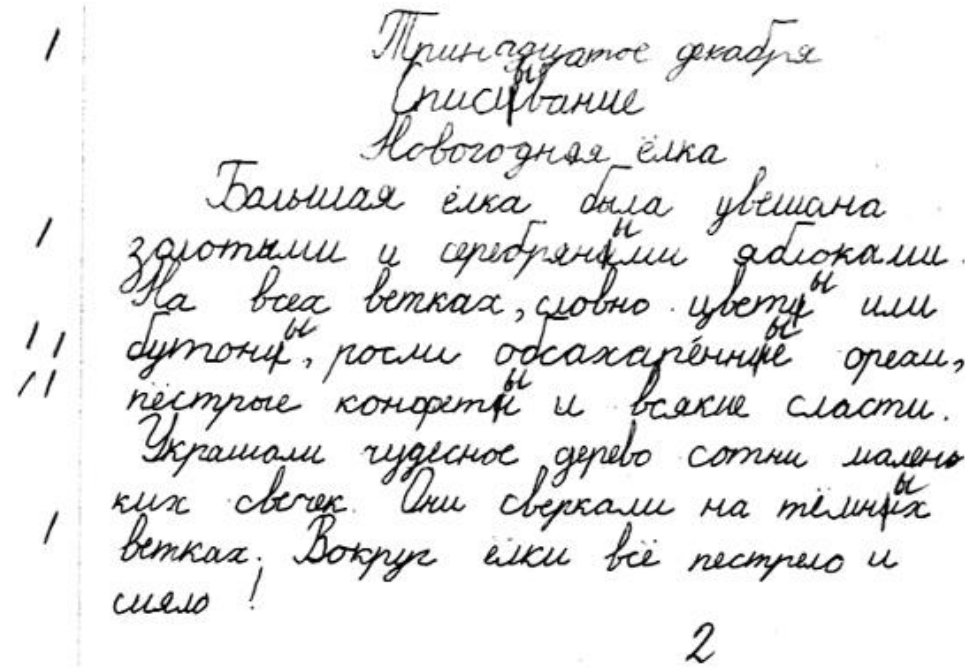 Тринадцатое декабря
Списывание
Новогодняя ёлка
Большая ёлка была увешана
золотыми и серебряными яблоками.
На всех ветках, словно цветы или
бутоны, росли обсахарённые орехи,
пёстрые конфеты и всякие сласти.
Украшали чудесное дерево сотни малень
ких свечек. Они сверкали на тёмных
ветках. Вокруг ёлки всё пестрело и
сияло!
2